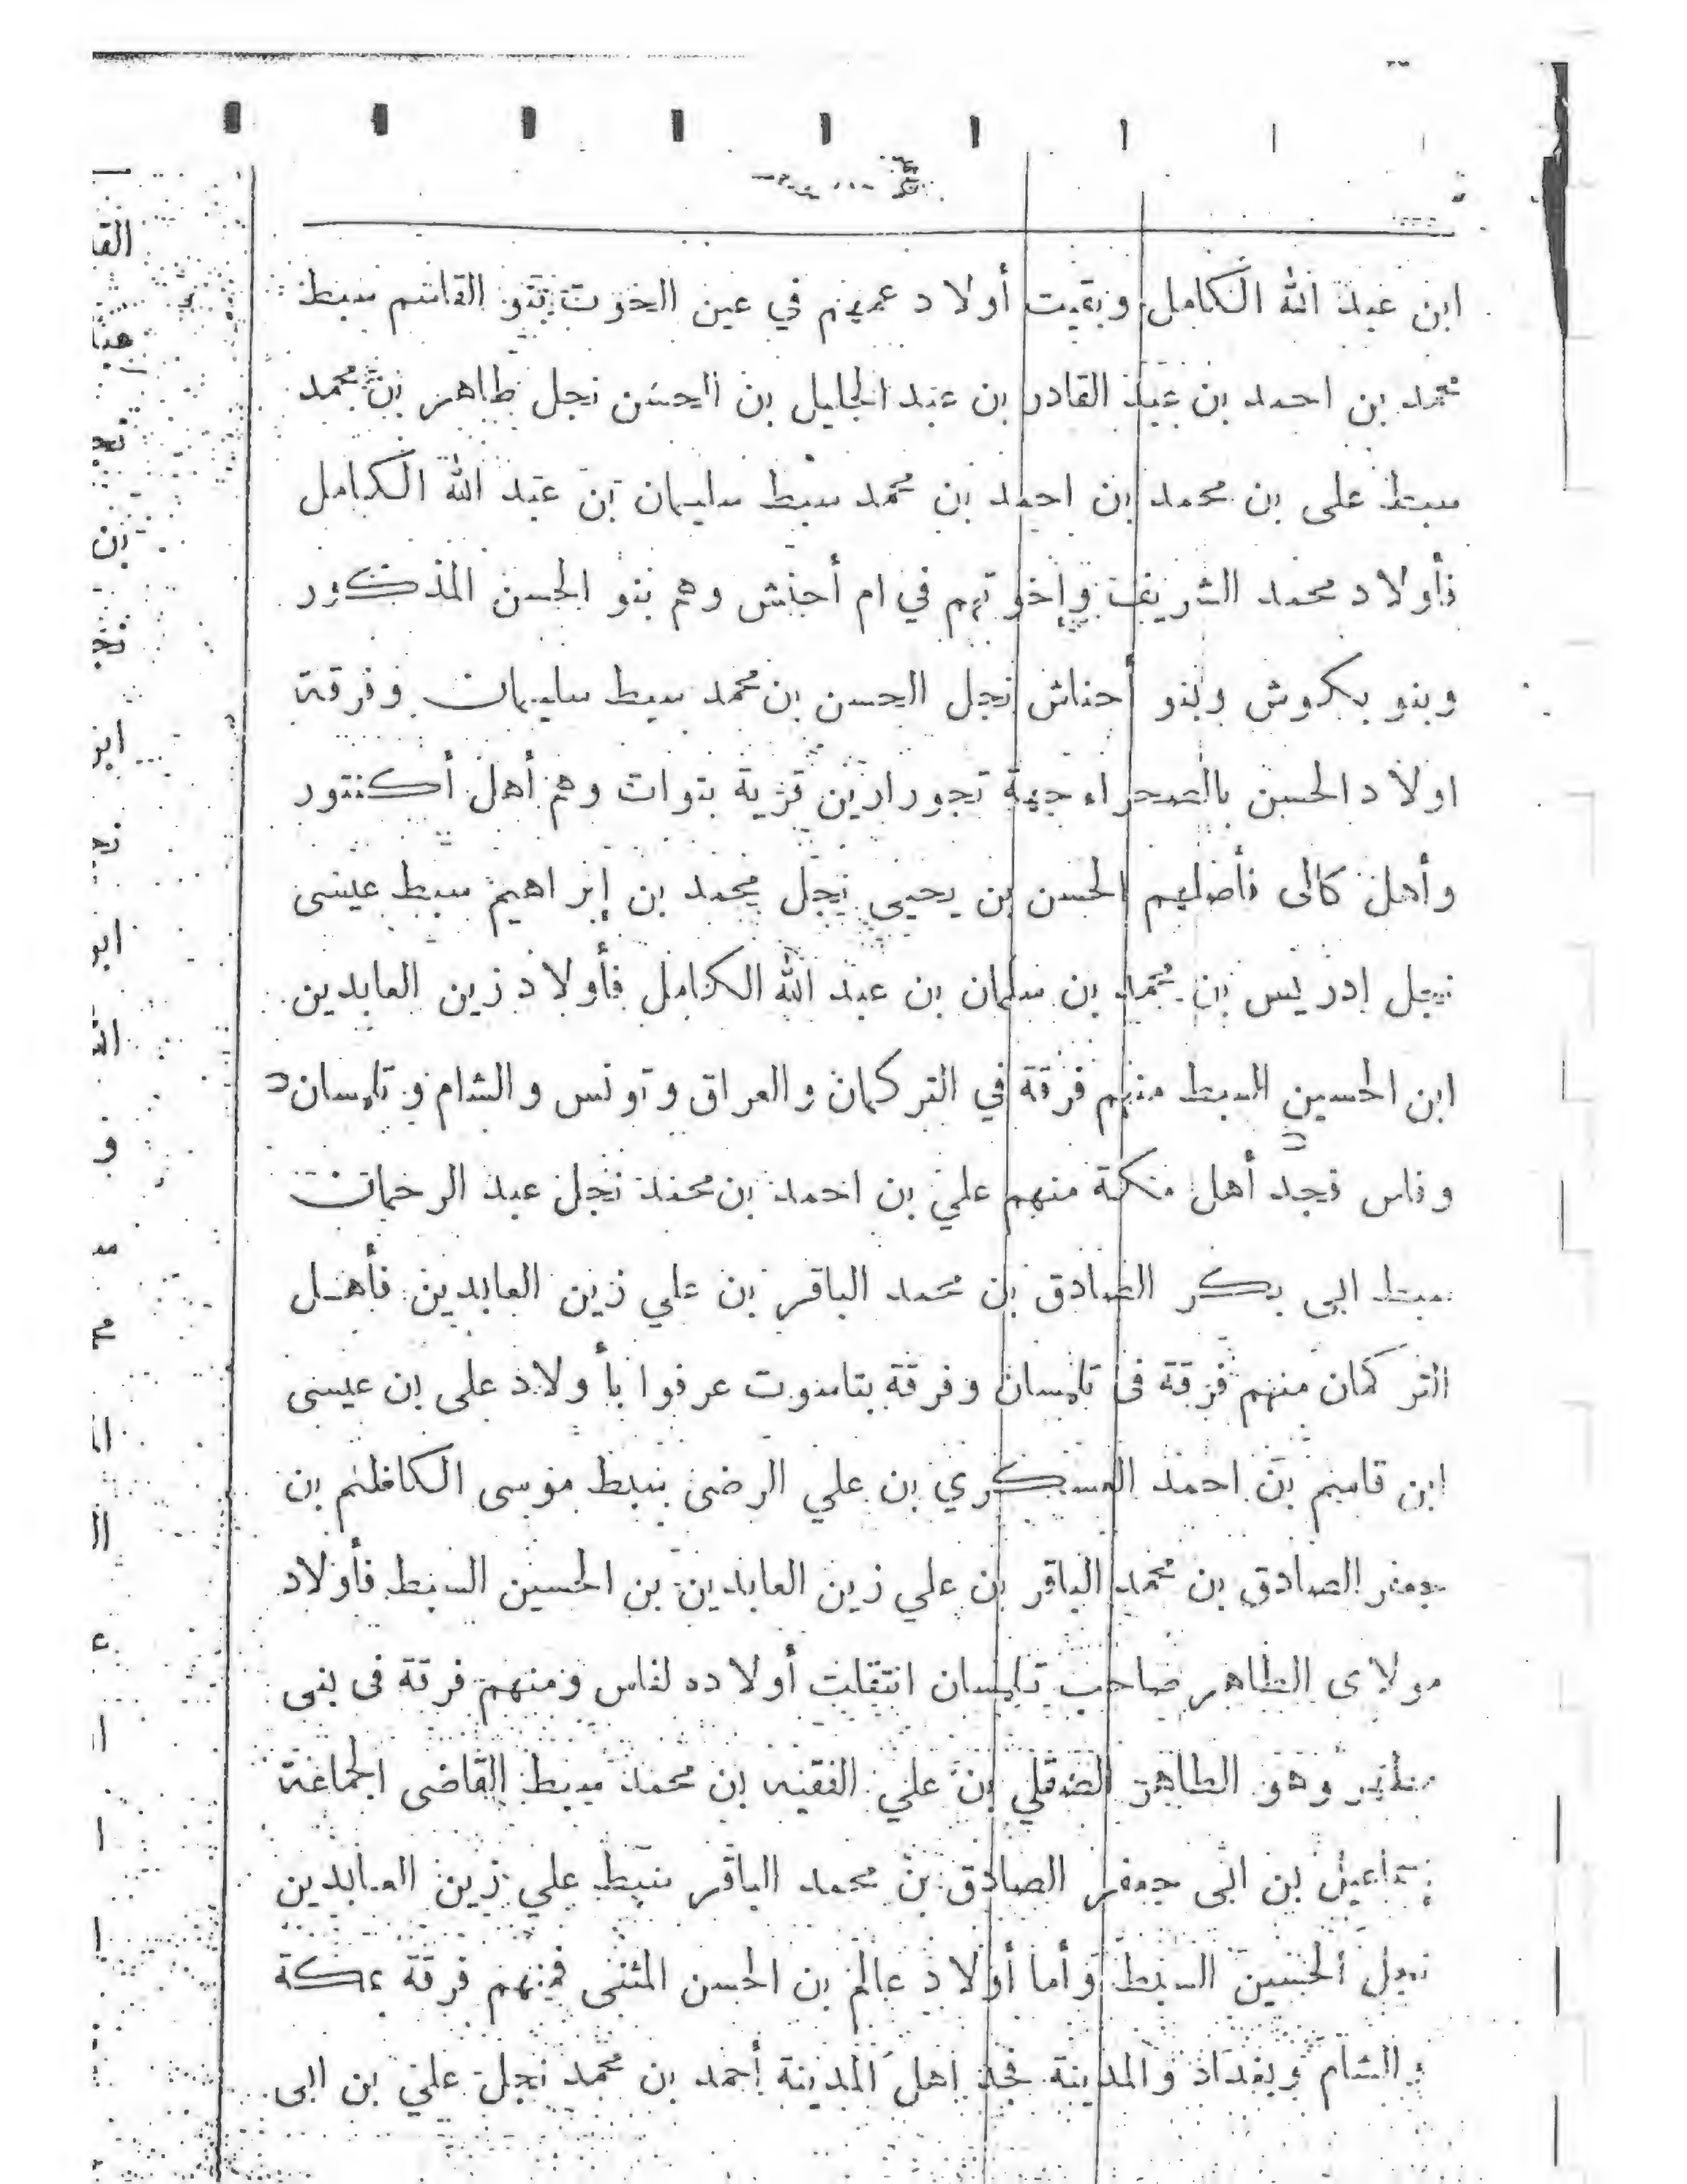 ابن عبد الله الكامل وبقيت أولاد عميهم في عين الحوت بنو القاسم سبط
محمد بن احمد بن عبد القادر بن عبد الجليل بن الحسن نجل طاهر بن محمد
سبط على بن محمد بن احمد بن محمد سبط سليمان بن عبد الله الكامل
فأولاد محمد الشريف وإخوتهم في ام أحنش وهم بنو الحسن المذكور
وبنو بكروش وبنو أحناش نجل الحسن بن محمد سبط سليمان وفرقة
اولاد الحسن بالصحراء جهة تجورارين قرية بتوات وهم أهل أكنتور
وأهل كالى فأصلهم الحسن بن يحيى نجل محمد بن إبراهيم سبط عيسى
نجل إدريس بن محمد بن سلمان بن عبد الله الكامل فأولاد زين العابدين
ابن الحسين السبط منهم فرقة في التركمان والعراق وتونس والشام وتلمسان
وفاس فجد أهل مكة منهم علي بن احمد بن محمد نجل عبد الرحمان
سبط ابى بكر الصادق بن محمد الباقر بن علي زين العابدين فأهل
التركمان منهم فرقة فى تلمسان وفرقة بتامنوت عرفوا بأولاد على بن عيسى
ابن قاسم بن احمد العسكري بن علي الرضى سبط موسى الكاظم بن
جعفر الصادق بن محمد الباقر بن علي زين العابدين بن الحسين السبط فأولاد
مولاى الطاهر صاحب تلمسان انتقلت أولاده لفاس ومنهم فرقة فى بنى
وهو الطاهر الصقلي بن علي الفقيه بن محمد سبط القاضى الجماعة
بن ابى جعفر الصادق بن محمد الباقر سبط علي زين العابدين
نجل الحسين السبط وأما أولاد عالم بن الحسن المثنى فمنهم فرقة بمكة
والشام وبغداد والمدينة فجد اهل المدينة أحمد بن محمد نجل علي بن ابى